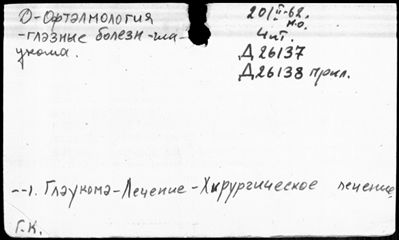 О-Офтэлмология
-глазные болезн-гла-
укома.
20/II-62.
н.о.
Чит.
Д26137
Д26138 прил.
--1. Глаукома-Лечение-Хирургическое лечение
Г.К.